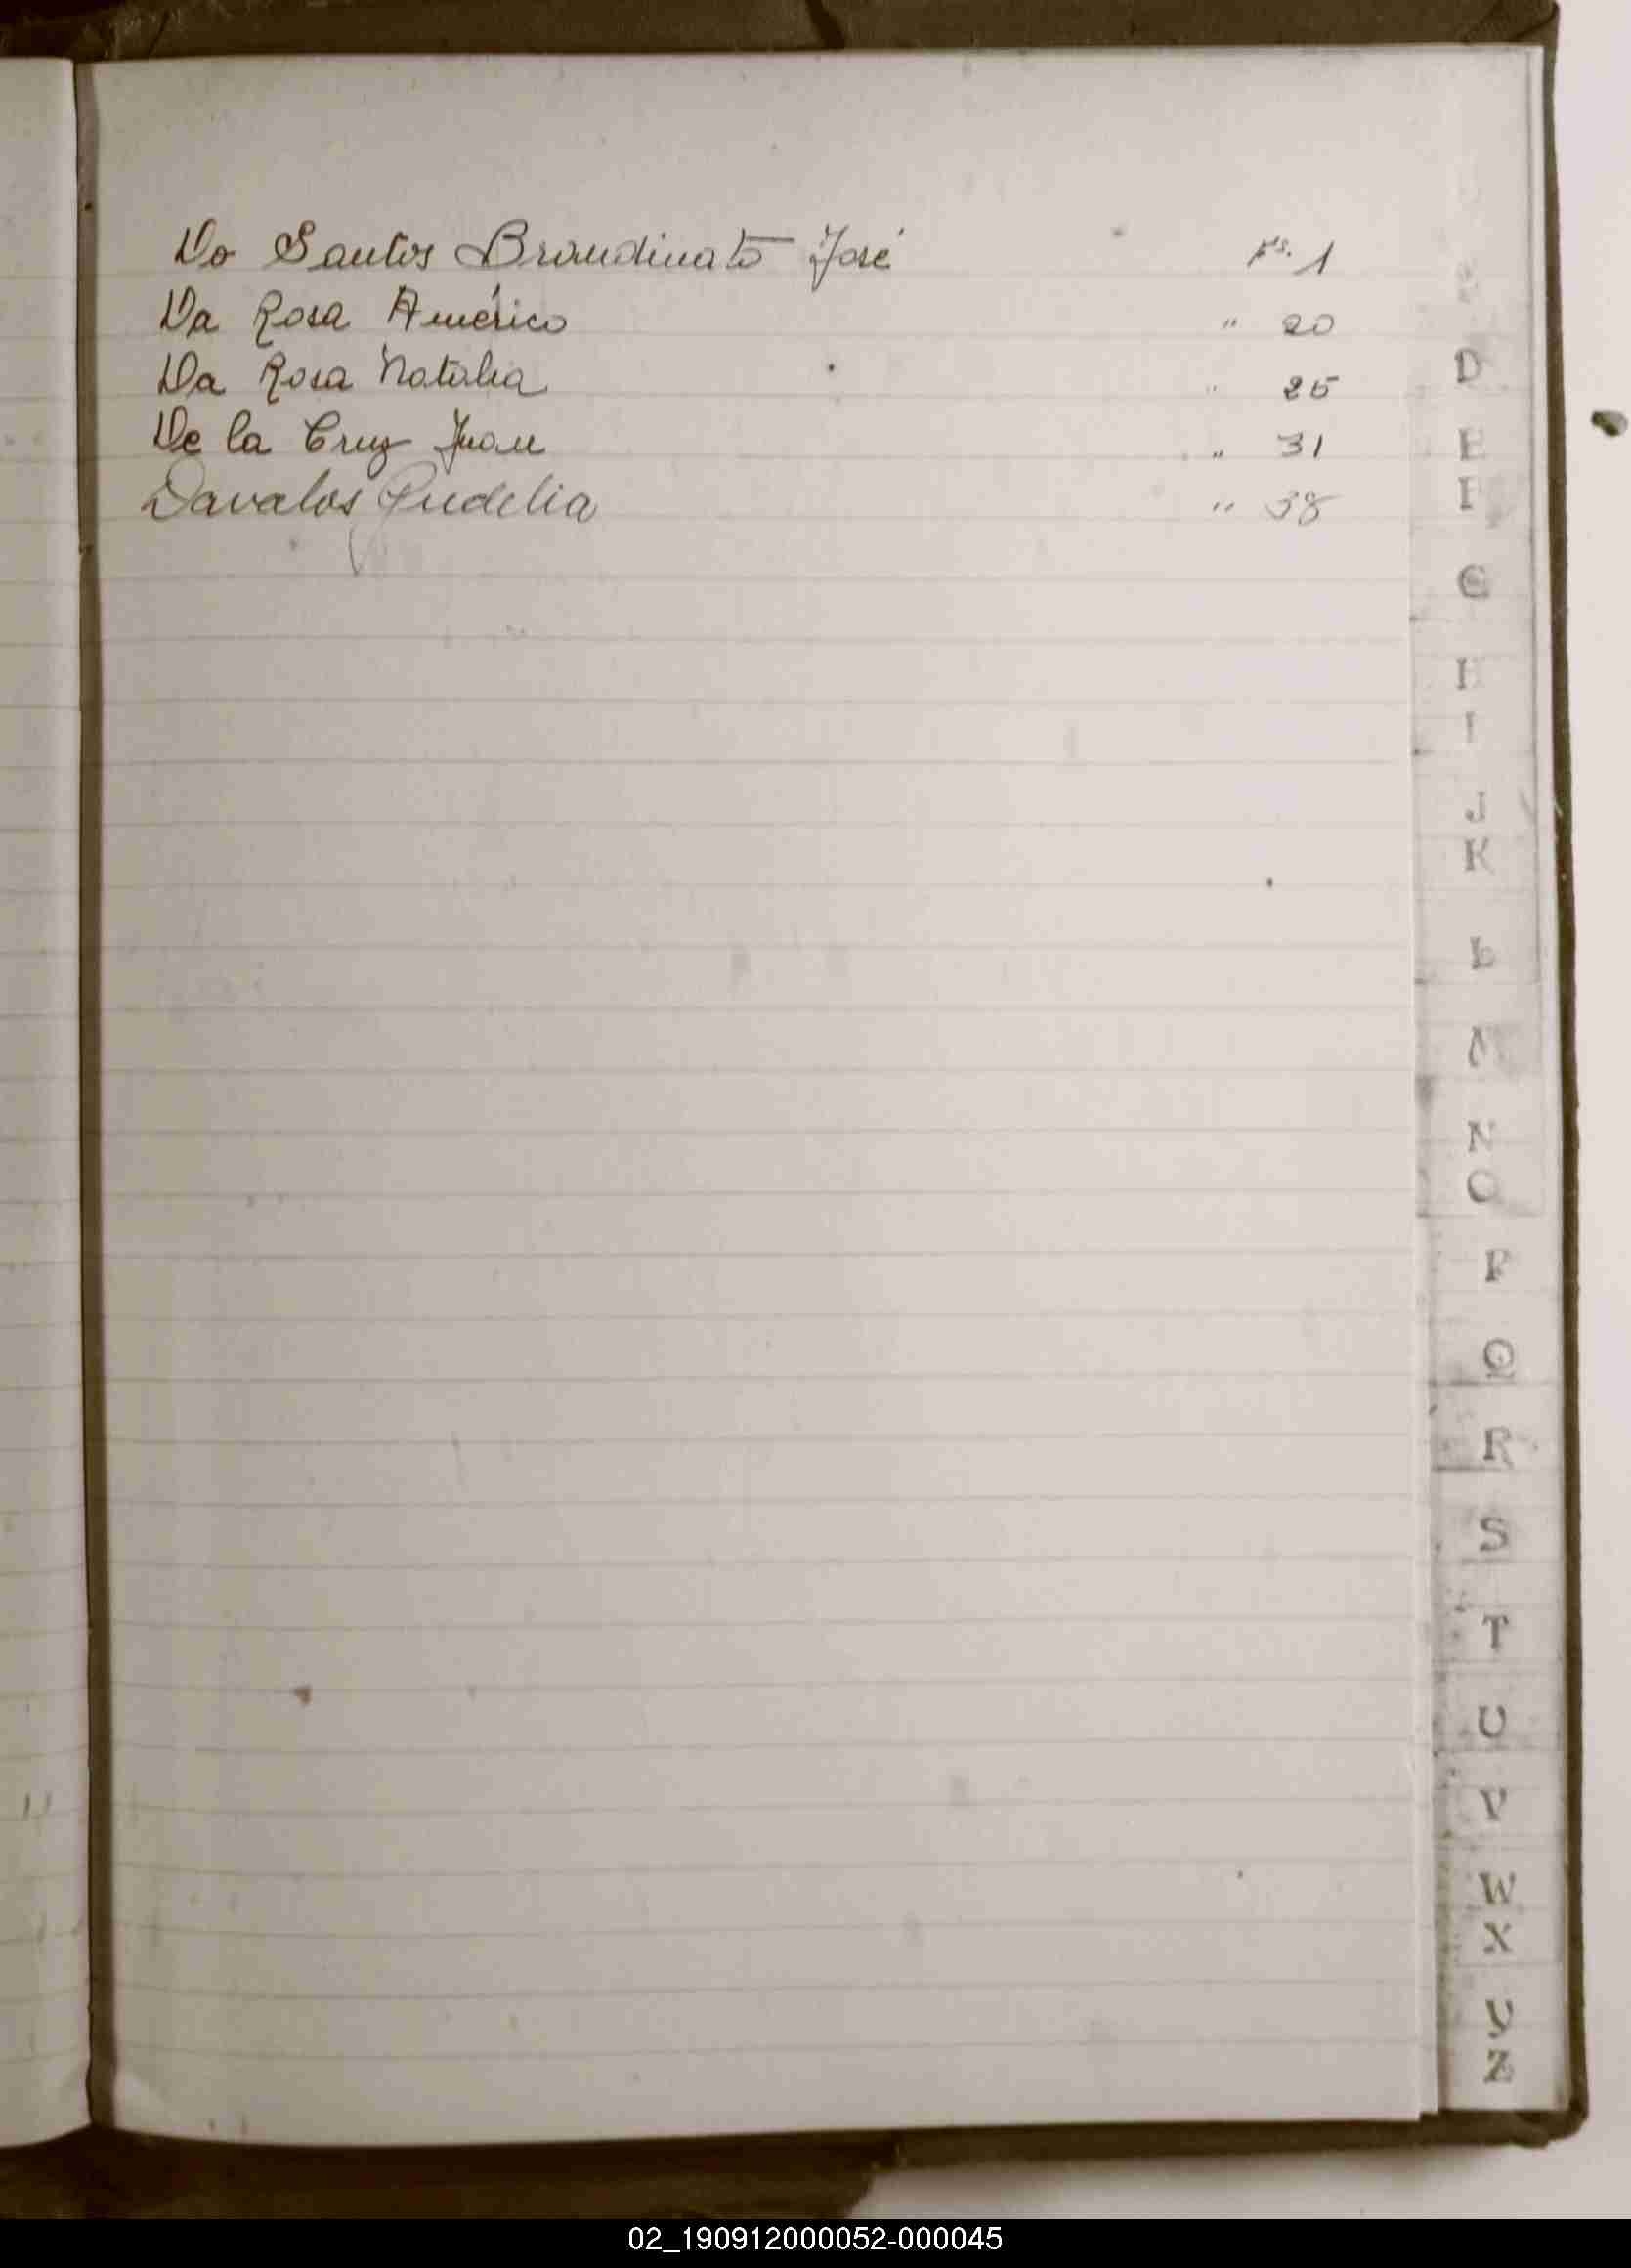 Do Santos Brandinato José Fs. 1
Da Rosa Américo " 20
Da Rosa Natalia " 25
De la Cruz Juan " 31
Davalos Gudelia " 38
D
E
F
G
H
I
J
K
L
M
N
O
P
Q
R
S
T
U
V
W
X
Y
Z
02_190912000052-000045